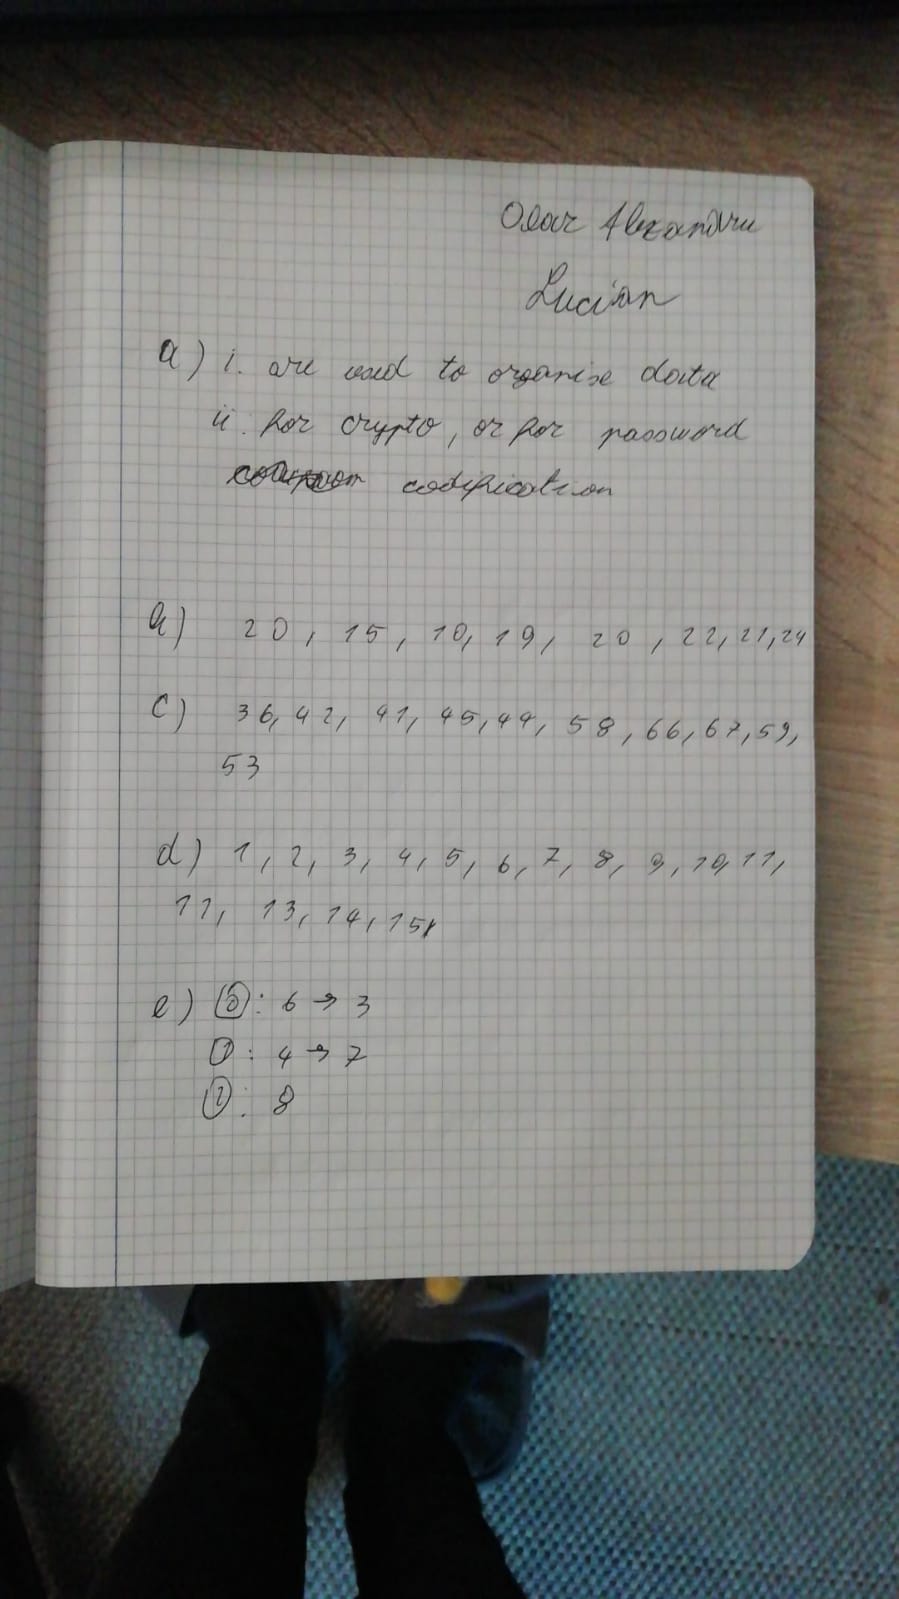 Olar Alexandru
Lucian
a) i. are used to organise data
ii. for crypto, or for password
codification
b) 20, 15, 10, 19, 20, 22, 21, 24
c) 36, 42, 41, 45, 44, 58, 66, 67, 59,
53
d) 1, 2, 3, 4, 5, 6, 7, 8, 9, 10, 11,
11, 13, 14, 15
e) 0: 6 → 3
1: 4 → 7
2: 8